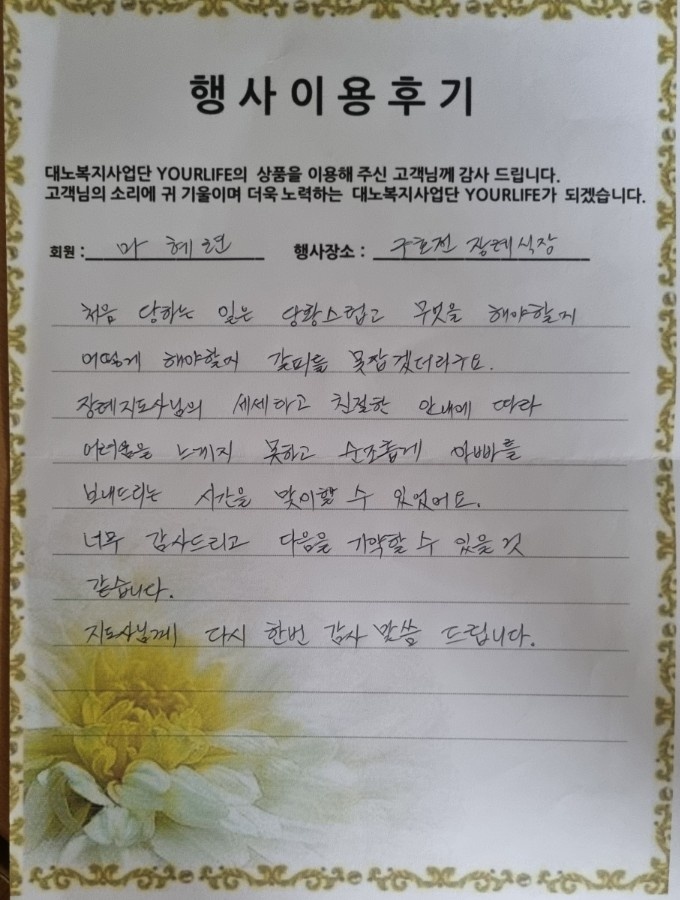 행사이용후기
대노복지사업단 YOURLIFE의 상품을 이용해 주신 고객님께 감사 드립니다.
고객님의 소리에 귀 기울이며 더욱 노력하는 대노복지사업단 YOURLIFE가 되겠습니다.
회원 : 마 혜련 행사장소 : 구호전 장례식장
처음 당하는 일은 당황스럽고 무엇을 해야할지
어떻게 해야할지 갈피를 못잡겠더라구요.
장례지도사님의 세세하고 친절한 안내에 따라
어려움을 느끼지 못하고 순조롭게 아빠를
보내드리는 시간을 맞이할 수 있었어요.
너무 감사드리고 다음을 기약할 수 있을 것
같습니다.
지도사님께 다시 한번 감사 말씀 드립니다.